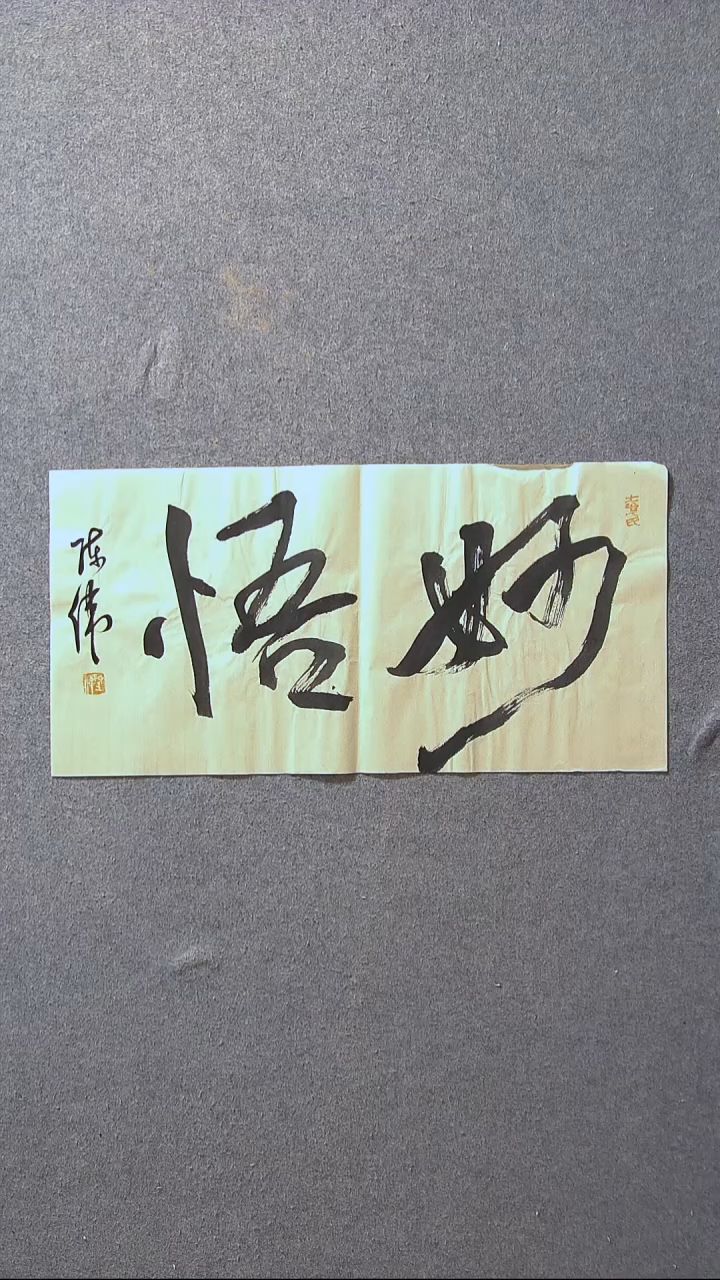 妙悟
陈伟